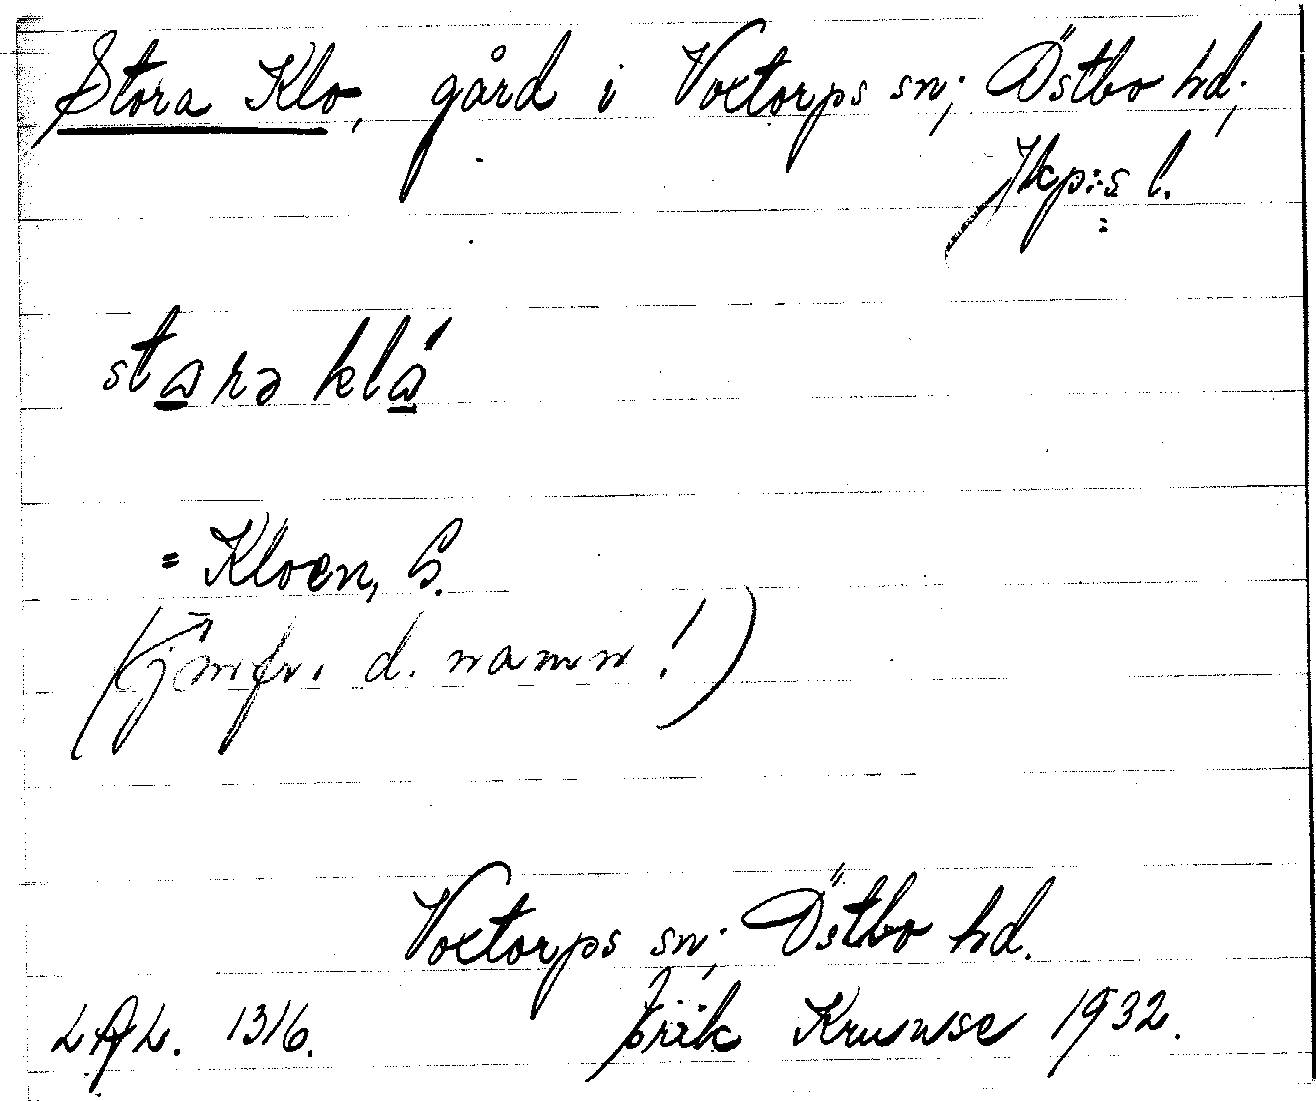 Stora Klo, gård i Voxtorps sn; Östbo hd;
Jkp:s l.
stara klá
= Kloen, S.
(jmfr. d. namn!)
Voxtorps sn; Östbo hd.
1316. Erik Kruuse 1932.